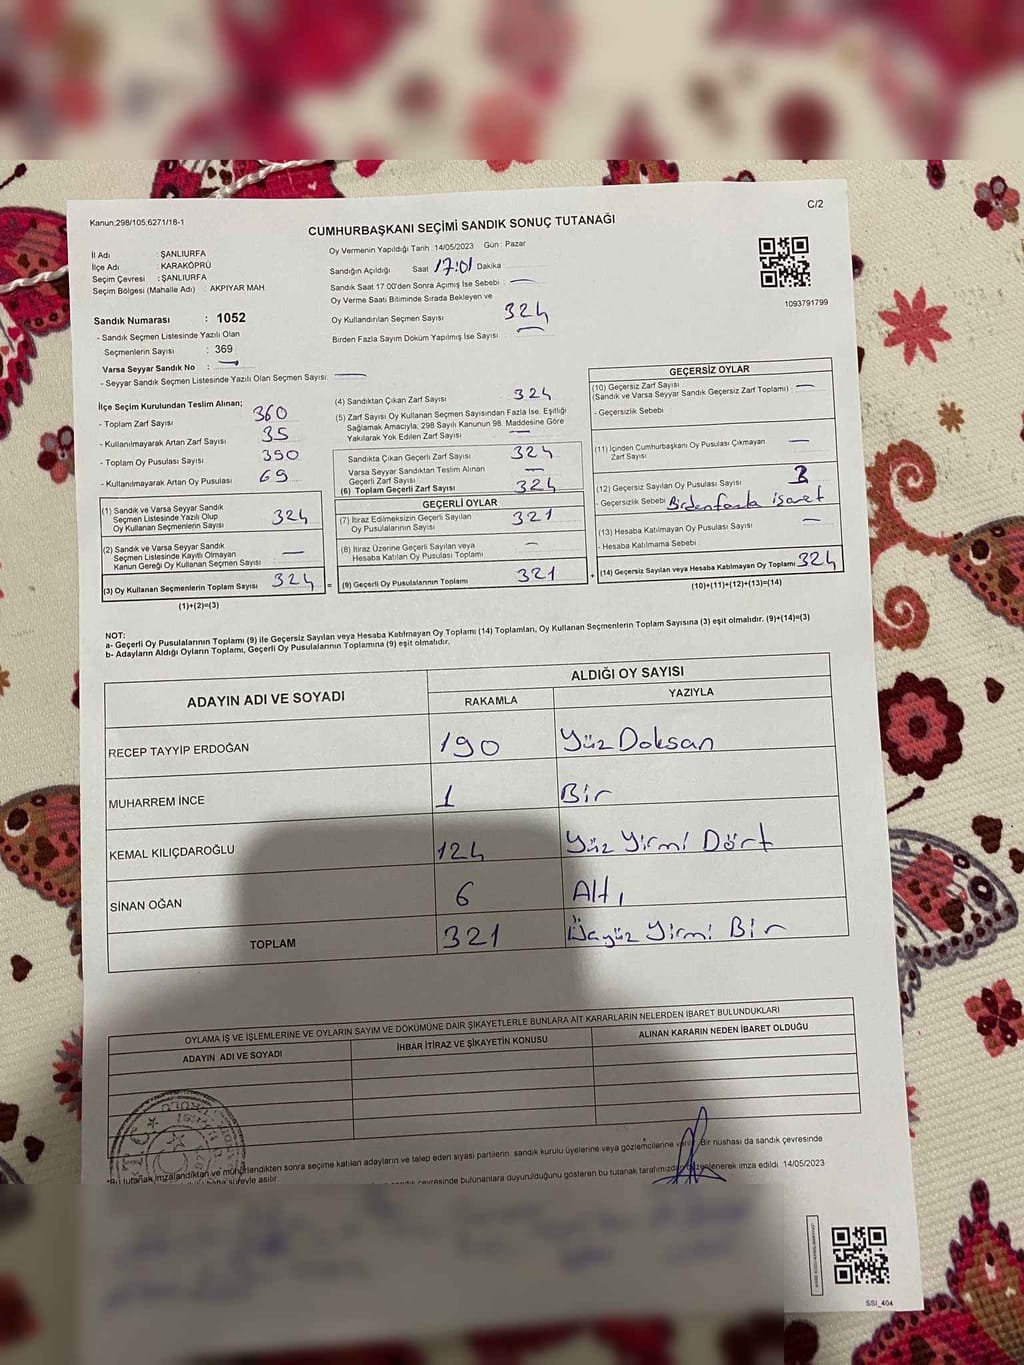 Kanun:298/105,6271/18-1
C/2
CUMHURBAŞKANI SEÇİMİ SANDIK SONUÇ TUTANAĞI
İl Adı : ŞANLIURFA
İlçe Adı : KARAKÖPRÜ
Seçim Çevresi : ŞANLIURFA
Seçim Bölgesi (Mahalle Adı) : AKPIYAR MAH
Oy Vermenin Yapıldığı Tarih : 14/05/2023 Gün : Pazar
Sandığın Açıldığı Saat 17:01 Dakika
Sandık Saat 17:00'den Sonra Açımış İse Sebebi : —
Oy Verme Saati Bitiminde Sırada Bekleyen ve
Oy Kullandırılan Seçmen Sayısı 324
Birden Fazla Sayım Döküm Yapılmış İse Sayısı : —
1093791799
Sandık Numarası : 1052
- Sandık Seçmen Listesinde Yazılı Olan
Seçmenlerin Sayısı : 369
Varsa Seyyar Sandık No : —
- Seyyar Sandık Seçmen Listesinde Yazılı Olan Seçmen Sayısı: —
İlçe Seçim Kurulundan Teslim Alınan;
- Toplam Zarf Sayısı 360
- Kullanılmayarak Artan Zarf Sayısı 35
- Toplam Oy Pusulası Sayısı 390
- Kullanılmayarak Artan Oy Pusulası 69
(1) Sandık ve Varsa Seyyar Sandık
Seçmen Listesinde Yazılı Olup
Oy Kullanan Seçmenlerin Sayısı 324
(2) Sandık ve Varsa Seyyar Sandık
Seçmen Listesinde Kayıtlı Olmayan
Kanun Gereği Oy Kullanan Seçmen Sayısı —
(3) Oy Kullanan Seçmenlerin Toplam Sayısı 324 =
(1)+(2)=(3)
(4) Sandıktan Çıkan Zarf Sayısı 324
(5) Zarf Sayısı Oy Kullanan Seçmen Sayısından Fazla İse, Eşitliği
Sağlamak Amacıyla, 298 Sayılı Kanunun 98. Maddesine Göre
Yakılarak Yok Edilen Zarf Sayısı —
Sandıkta Çıkan Geçerli Zarf Sayısı 324
Varsa Seyyar Sandıktan Teslim Alınan
Geçerli Zarf Sayısı —
(6) Toplam Geçerli Zarf Sayısı 324
GEÇERLİ OYLAR
(7) İtiraz Edilmeksizin Geçerli Sayılan
Oy Pusulalarının Sayısı 321
(8) İtiraz Üzerine Geçerli Sayılan veya
Hesaba Katılan Oy Pusulası Toplamı —
(9) Geçerli Oy Pusulalarının Toplamı 321 +
GEÇERSİZ OYLAR
(10) Geçersiz Zarf Sayısı
(Sandık ve Varsa Seyyar Sandık Geçersiz Zarf Toplamı) : —
- Geçersizlik Sebebi
(11) İçinden Cumhurbaşkanı Oy Pusulası Çıkmayan
Zarf Sayısı —
(12) Geçersiz Sayılan Oy Pusulası Sayısı
- Geçersizlik Sebebi Birdenfazla işaret
(13) Hesaba Katılmayan Oy Pusulası Sayısı —
- Hesaba Katılmama Sebebi
(14) Geçersiz Sayılan veya Hesaba Katılmayan Oy Toplamı 324
(10)+(11)+(12)+(13)=(14)
NOT:
a- Geçerli Oy Pusulalarının Toplamı (9) ile Geçersiz Sayılan veya Hesaba Katılmayan Oy Toplamı (14) Toplamları, Oy Kullanan Seçmenlerin Toplam Sayısına (3) eşit olmalıdır. (9)+(14)=(3)
b- Adayların Aldığı Oyların Toplamı, Geçerli Oy Pusulalarının Toplamına (9) eşit olmalıdır.
ADAYIN ADI VE SOYADI
ALDIĞI OY SAYISI
RAKAMLA YAZIYLA
RECEP TAYYİP ERDOĞAN 190 Yüz Doksan
MUHARREM İNCE 1 Bir
KEMAL KILIÇDAROĞLU 124 Yüz Yirmi Dört
SİNAN OĞAN 6 Altı
TOPLAM 321 Üçyüz Yirmi Bir
OYLAMA İŞ VE İŞLEMLERİNE VE OYLARIN SAYIM VE DÖKÜMÜNE DAİR ŞİKAYETLERLE BUNLARA AİT KARARLARIN NELERDEN İBARET BULUNDUKLARI
ADAYIN ADI VE SOYADI İHBAR İTİRAZ VE ŞİKAYETİN KONUSU ALINAN KARARIN NEDEN İBARET OLDUĞU
imzalandıktan ve mühürlendikten sonra seçime katılan adayların ve talep eden siyasi partilerin sandık kurulu üyelerine veya gözlemcilerine verilir. Bir nüshası da sandık çevresinde
süreyle asılır.
çevresinde bulunanlara duyurulduğunu gösteren bu tutanak tarafımızdan düzenlenerek imza edildi. 14/05/2023
SSI_404